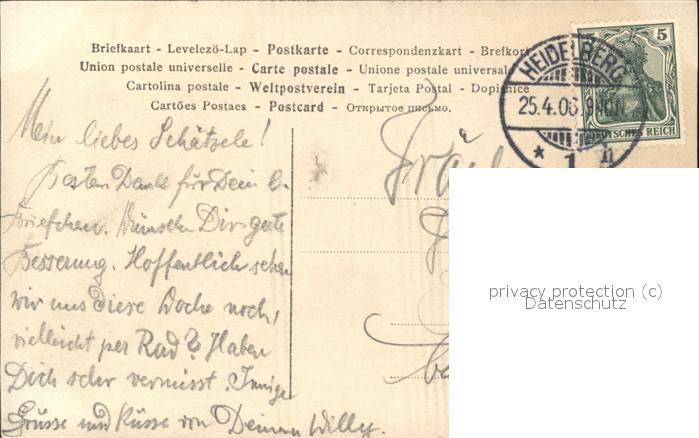 Briefkaart - Levelezö-Lap - Postkarte - Correspondenzkart - Brefkort
Union postale universelle - Carte postale - Unione postale universale
Cartolina postale - Weltpostverein - Tarjeta Postal - Dopisnice
Cartões Postaes - Postcard - Открытое письмо.
HEIDELBERG
25.4.06. 9-10N
* 1 h
5 5
DEUTSCHES REICH
Mein liebes Schätzele!
Besten Dank für Dein l.
Briefchen. Wünsche Dir gute
Besserung. Hoffentlich sehen
wir uns diese Woche noch,
vielleicht per Rad? Haben
Dich sehr vermisst. Innige
Grüsse und Küsse von Deinem Willy.
privacy protection (c)
Datenschutz